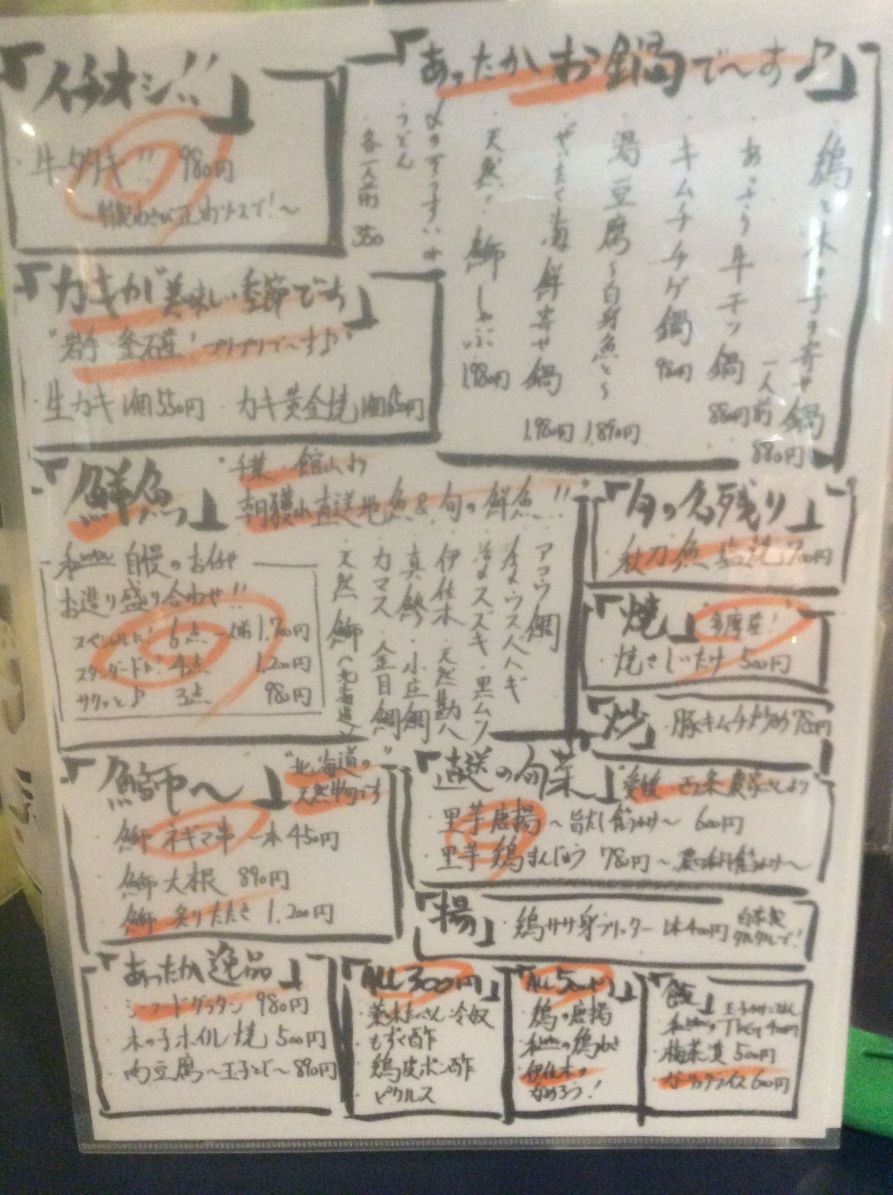 「イチオシ!!」
牛タタキ!! 980円
「カキが美味しい季節です」
"岩手 釜石産! プリプリで〜す♪"
・生カキ 1個550円 ・カキ黄金焼 1個
「あったかお鍋で〜す♪」
鶏と木の子の寄せ鍋 一人前 880円
・あっさり牛モツ鍋 880円
・キムチチゲ鍋 980円
・湯豆腐〜白身魚と〜 1,890円
・ぜいたく海鮮寄せ鍋 1,980円
・天然! 鰤しゃぶ 1,980円
・うどん
各一人前 350
「鮮魚っ」
千葉 館山より
朝獲れ直送地魚&旬の鮮魚!!
自慢のお任せ
お造り盛り合わせ!!
スペシャルだ! 6点 一人前 1,700円
スタンダードだ! 4点 1,200円
サクッと♪ 3点 980円
アコウ鯛
活〆スズキ・黒ムツ
伊佐木・天然勘八
真鯵・小庄鯛
カマス・金目鯛
天然 鰤(北海道)
「旬の名残り」
・秋刀魚 塩焼 700円
「焼」多摩産!
・焼きしいたけ 500円
「炒」・豚キムチ炒め 780円
「鰤〜」"北海道の天然物です
・鰤 ネギマ串 一本 450円
・鰤大根 890円
・鰤 炙りたたき 1,200円
「直送の旬菜」"愛媛 西条 農家さんより
・里芋唐揚〜旨だし餡かけ〜 600円
・里芋 鶏まんじゅう 780円
「揚」・鶏ササ身フリッター 1本400円 自家製タルタルで!
「あったか逸品」
・シーフードグラタン 980円
・木の子ホイル焼 500円
・肉豆腐〜玉子とじ〜 890円
「ALL 300円」
冷奴
・もずく酢
・鶏皮ポン酢
・ピクルス
「ALL 500円」
・鶏の唐揚
・伊佐木のなめろう!
「飯」
・梅茶漬 500円
・ガーリックライス 600円